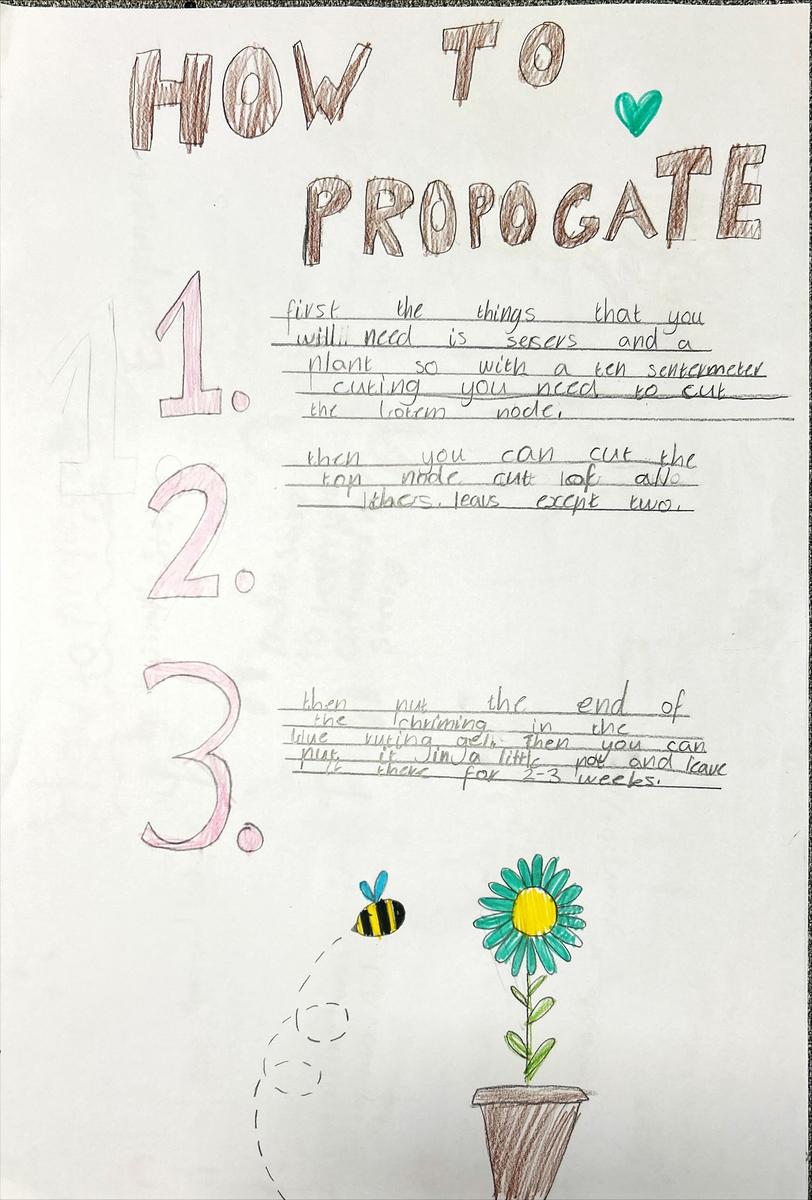 HOW TO
PROPOGATE
1.
first the things that you
will need is sesers and a
plant so with a ten sentermeter
cuting you need to cut
the botem node.
2.
then you can cut the
top node cut of all
leavs except two.
3.
then put the end of
the in the
blue ruting gel. Then you can
put it in a little pot and leave
it there for 2-3 weeks.